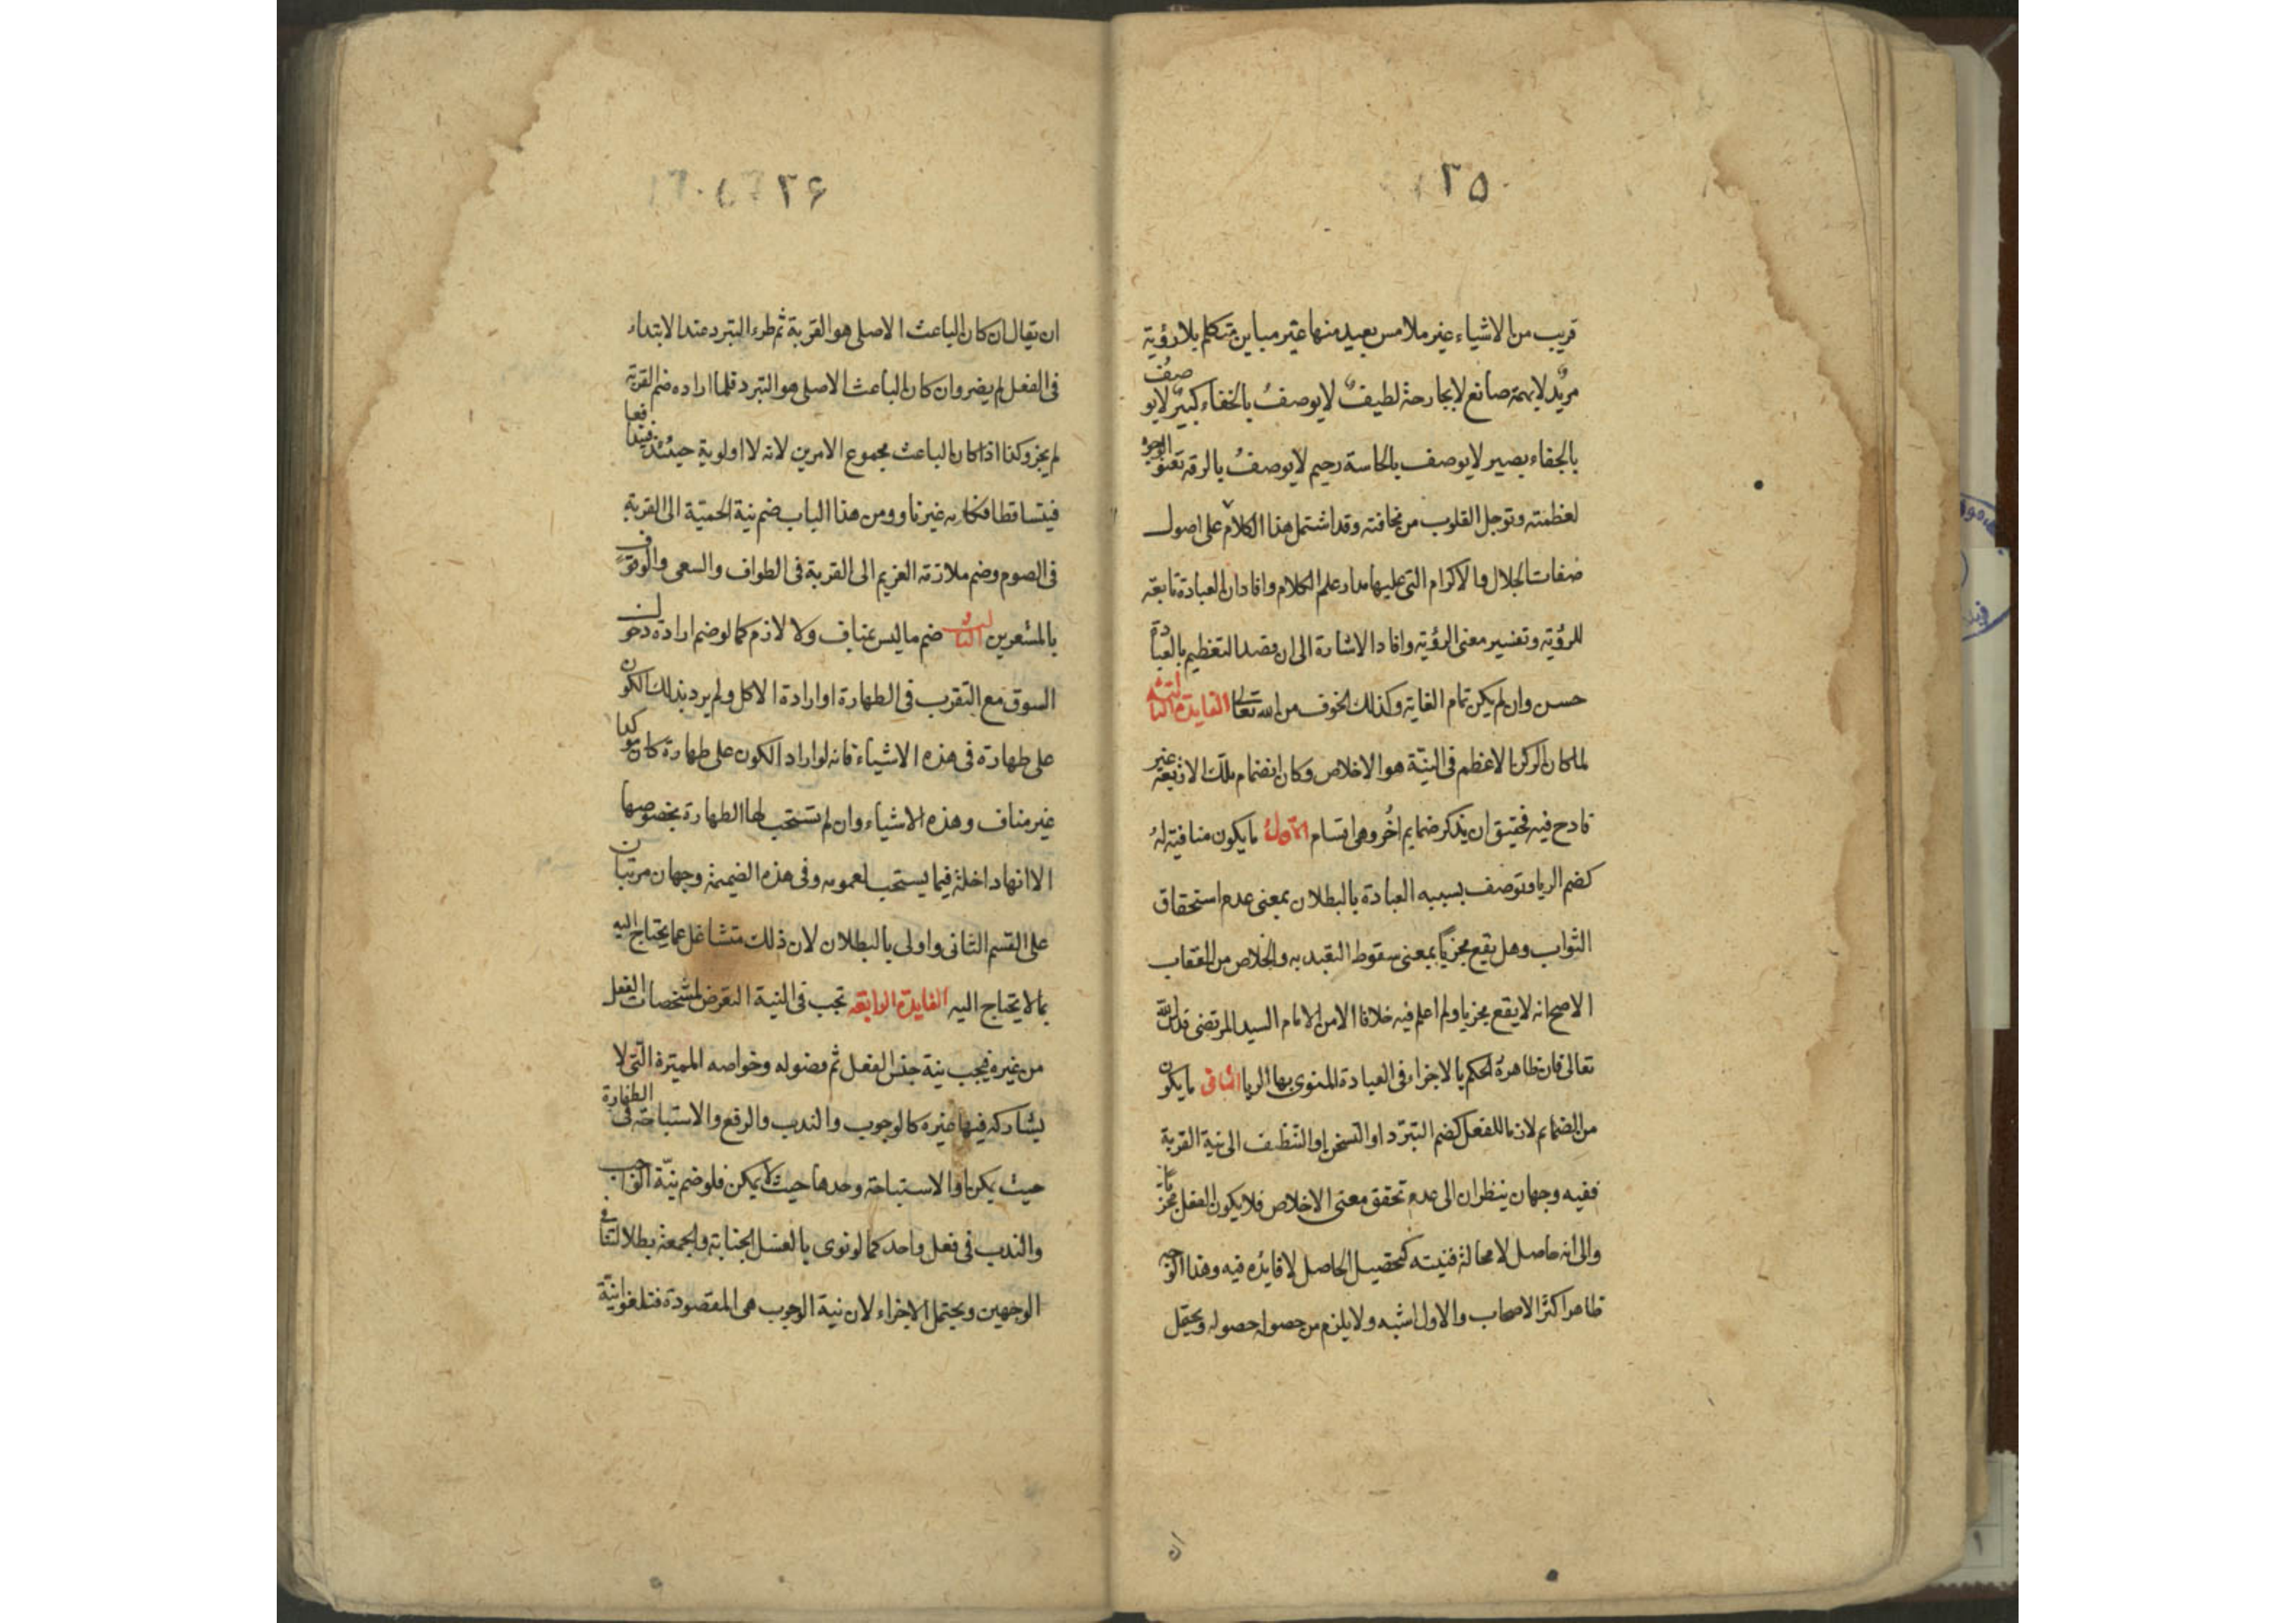 ۳۵
قريب من الاشياء غير ملامس بعيد منها غير مباين متكلم بلا رؤية
مريد لا بهمة صانع لا بجارحة لطيف لا يوصف بالخفاء كبير لا يوصف
بالجفاء بصير لا يوصف بالحاسة رحيم لا يوصف بالرقة تعنو الوجوه
لعظمته وتوجل القلوب من مخافته وقد اشتمل هذا الكلام على اصول
صفات الجلال والاكرام التى عليها مدار علم الكلام وافاد ان العبادة تابعة
للرؤية وتفسير معنى الرؤية وافاد الاشارة الى ان قصد التعظيم بالعبادة
حسن وان لم يكن تمام الغاية وكذلك الخوف من الله تعالى الفايدة الثالثة
لما كان الركن الاعظم فى النية هو الاخلاص وكان انضمام تلك الاربعة غير
قادح فيه فحقيق ان يذكر ضمايم اخر وهى اقسام الاول ما يكون منافية له
كضم الريا وتوصف بسببه العبادة بالبطلان بمعنى عدم استحقاق
الثواب وهل يقع مجزيا بمعنى سقوط التعبد به والخلاص من العقاب
الاصح انه لا يقع مجزيا ولم اعلم فيه خلافا الا من الامام السيد المرتضى قدس الله
تعالى فان ظاهره الحكم بالاجزاء فى العبادة المنوى بها الريا الثانى ما يكون
من الضمايم لازما للفعل كضم التبرد او التسخن او التنظيف الى نية القربة
ففيه وجهان ينظران الى عدم تحقق معنى الاخلاص فلا يكون الفعل مجزيا
والى انه حاصل لا محالة فنيته كتحصيل الحاصل لا فايده فيه وهذا الوجه
ظاهر اكثر الاصحاب والاول اشبه ولا يلزم من حصوله حصوله ويحتمل
ان
۳۶
ان يقال ان كان الباعث الاصلى هو القربة ثم طرء التبرد عند الابتداء
فى الفعل لم يضر وان كان الباعث الاصلى هو التبرد فلما اراده ضم القربة
لم يجز وكذا اذا كان الباعث مجموع الامرين لانه لا اولوية حينئذ فتدافعا
فيتساقطا فكانه غير ناو ومن هذا الباب ضم نية الحمية الى القربة
فى الصوم وضم ملازمة الغريم الى القربة فى الطواف والسعى والوقوف
بالمشعرين الثالث ضم ما ليس بمناف ولا لازم كما لو ضم ارادة دخول
السوق مع التقرب فى الطهارة او ارادة الاكل ولم يرد بذلك الكون
على طهارة فى هذه الاشياء فانه لو اراد الكون على طهارة كان موكدا
غير مناف وهذه الاشياء وان لم تستحب لها الطهارة بخصوصها
الا انها داخلة فيما يستحب لعمومه وفى هذه الضميمة وجهان مرتبان
على القسم الثانى واولى بالبطلان لان ذلك متشاغل عما يحتاج اليه
بما لا يحتاج اليه الفايدة الرابعه تجب فى النية التعرض لمشخصات الفعل
من غيره فيجب نية جنس الفعل ثم فصوله وخواصه المميزة التى لا
يشاركه فيها غيره كالوجوب والندب والرفع والاستباحة فى الطهارة
حيث يمكن او الاستباحة وحدها حيث لا يمكن فلو ضم نية الواجب
والندب فى فعل واحد كما لو نوى بالغسل الجنابة والجمعة بطلا لتنافى
الوجهين ويحتمل الاجزاء لان نية الوجوب هى المقصودة فتلغوا نية